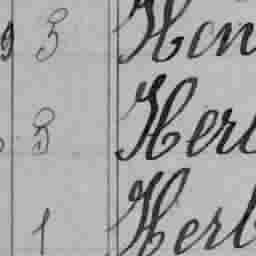 9 3 Hen
3 Herb
1 Herb